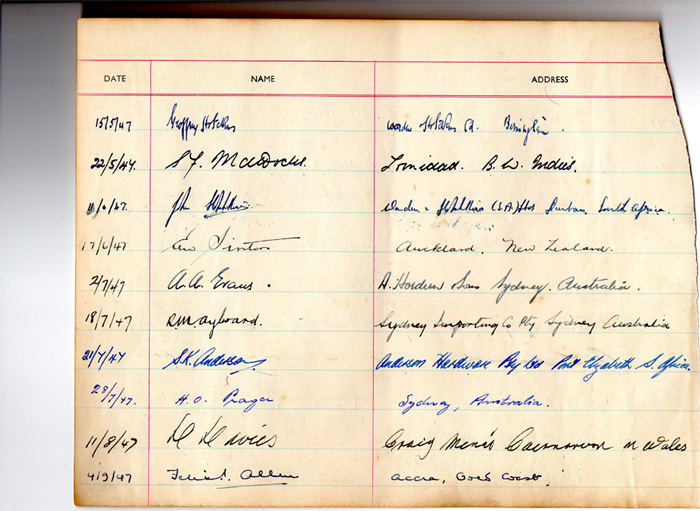 DATE NAME ADDRESS
15/5/47 Geoffrey Hotchkiss
22/5/47. S.F. Maddocks. Trinidad. B.W. Indies.
47. (S.A.) Durban, South Africa.
17/6/47 Auckland, New Zealand.
2/7/47 A.A. Evans. A. Hordern & Sons Sydney. Australia.
18/7/47 R.M. Aylward. Sydney Importing Co Pty Sydney Australia
21/7/47 S.K. Anderson Anderson Hardware Pty Ltd Port Elizabeth S. Africa.
28/7/47. H.O. Prager Sydney, Australia.
11/8/47 D Davies Craig Menai Caernarvon N Wales
4/9/47 Allen Accra, Gold Coast.